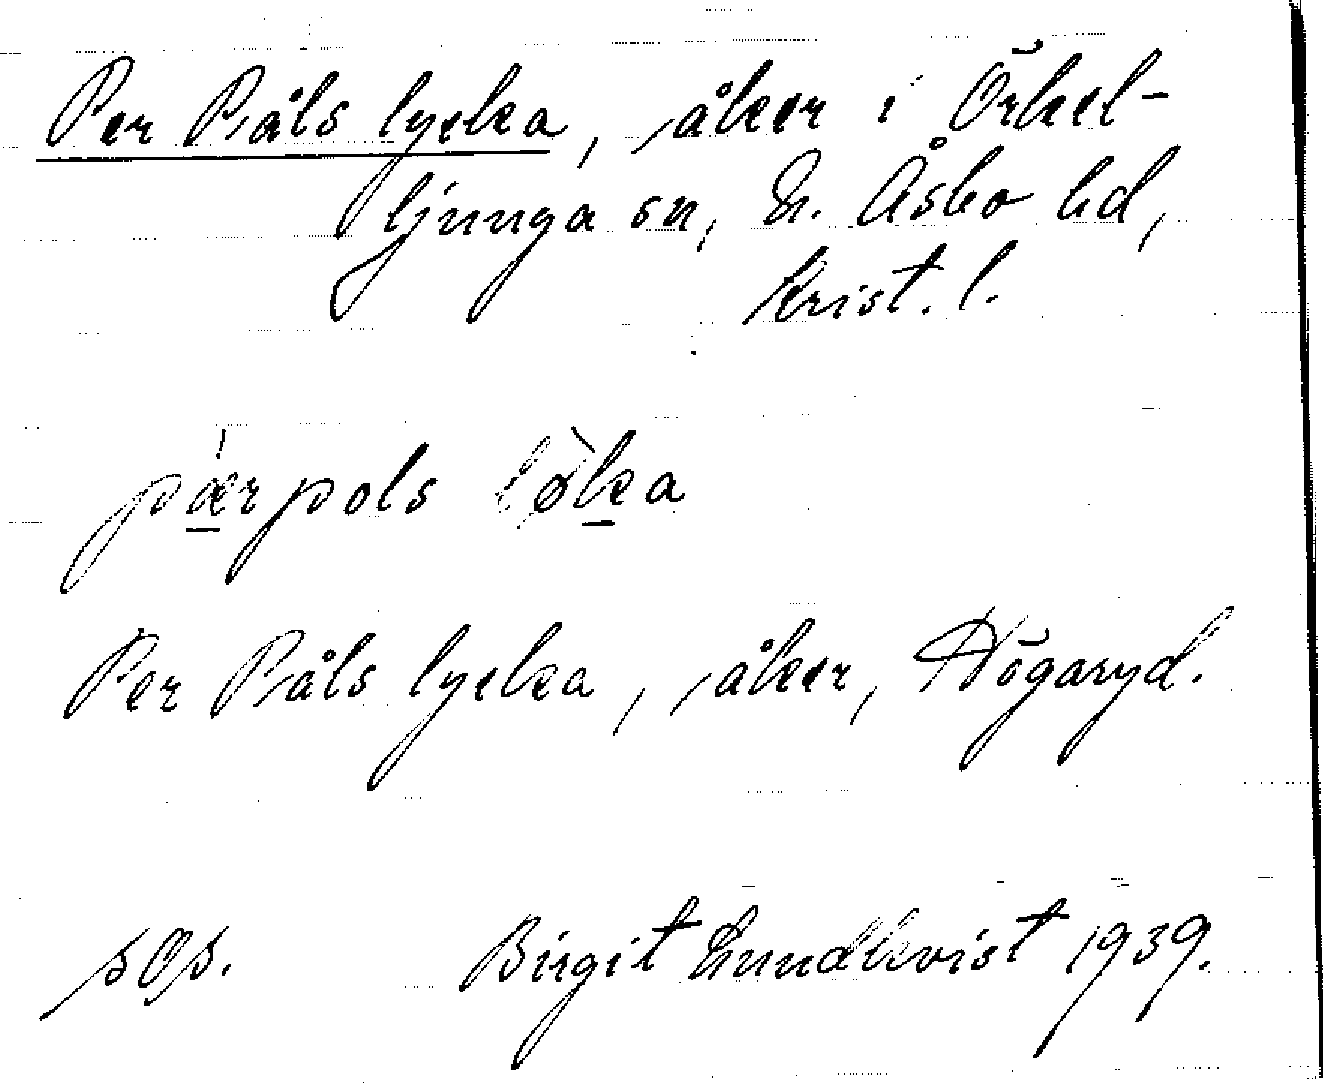 Per Påls lycka, åker i Örkel-
ljunga sn, N. Åsbo hd,
Krist. l.
pæ̱rpols lø̀ḵa
Per Påls lycka, åker, Högaryd.
sOs. Birgit Lundkvist 1939.